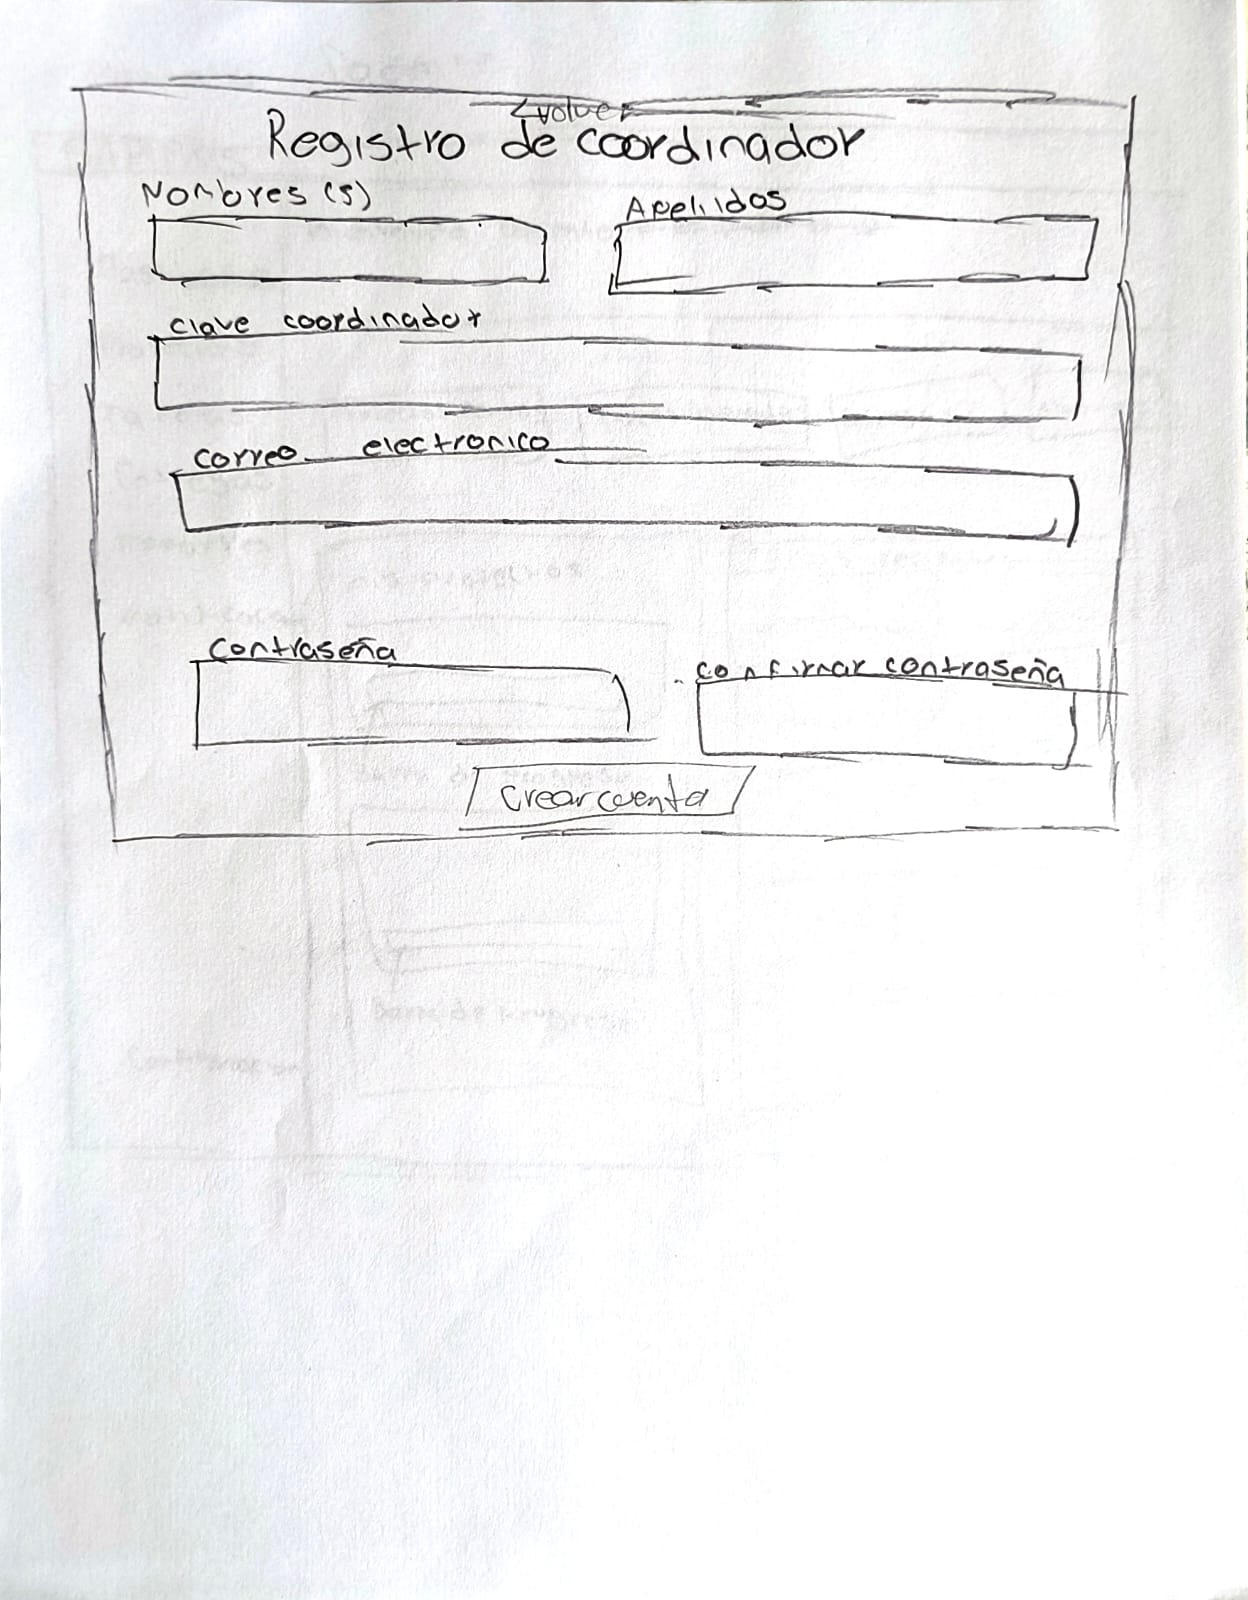 <volver
Registro de coordinador
Nombres (s)
Apellidos
clave coordinador
correo electronico
contraseña
confirmar contraseña
Crear cuenta